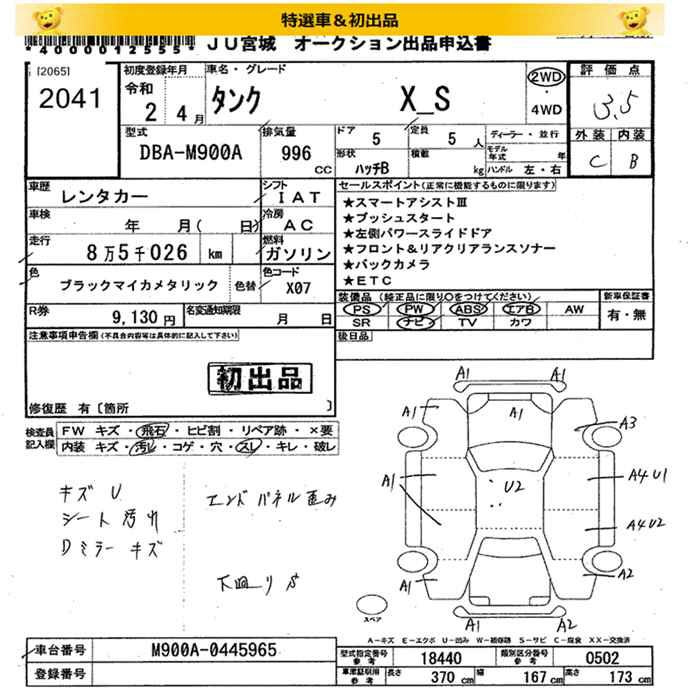 特選車＆初出品
*4000012555*
JU宮城 オークション出品申込書
[2065]
2041
初度登録年月
令和
2年4月
車名・グレード
タンク X_S
2WD
・
4WD
評価点
3.5
外装 内装
C B
型式
DBA-M900A
排気量
996
CC
ドア 5
定員 5人
形状 ハッチB
積載 kg
ディーラー・並行
モデル年式 年
ハンドル 左・右
車歴 レンタカー
シフト IAT
車検 年 月( 日)
冷房 AC
走行 8万5千026 km
燃料 ガソリン
色 ブラックマイカメタリック 色替
色コード X07
R券 9,130円
名変通知期限 月 日
セールスポイント(正常に機能するものに限ります)
★スマートアシストⅢ
★プッシュスタート
★左側パワースライドドア
★フロント&リアクリアランスソナー
★バックカメラ
★ETC
装備品 (純正品に限り○をつけてください)
PS PW ABS エアB AW
SR ナビ TV カワ
新車保証書
有・無
後日品
注意事項申告欄(不具合内容等は具体的に記入して下さい)
初出品
修復歴 有〔箇所 〕
検査員記入欄
FW キズ・飛石・ヒビ割・リペア跡・×要
内装 キズ・汚れ・コゲ・穴・スレ・キレ・破レ
キズ U
シート 汚れ
Dミラー キズ
エンドパネル歪み
下廻り S
A1 A1
A1 A1 A3
A1 U2 A4 U1
A4 U2
A1 A2
A1 A2
スペア
A-キズ E-エクボ U-凹み W-補修跡 S-サビ C-腐食 XX-交換済
車台番号 M900A-0445965
登録番号
型式指定番号 参考 18440
類別区分番号 参考 0502
車庫証明用 参考 長さ 370 cm 幅 167 cm 高さ 173 cm